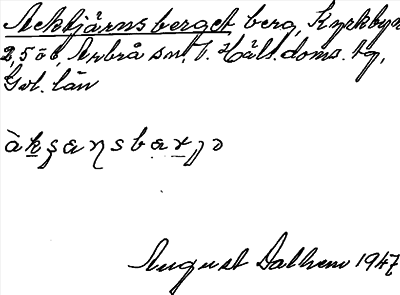 Acktjärnsberget berg, Kyrkbyn
2,5 ö 6, Arbrå sn, V. Häls. doms. tg,
Gvl. län
àkʂæɳsbærjə
August Dalhem 1947